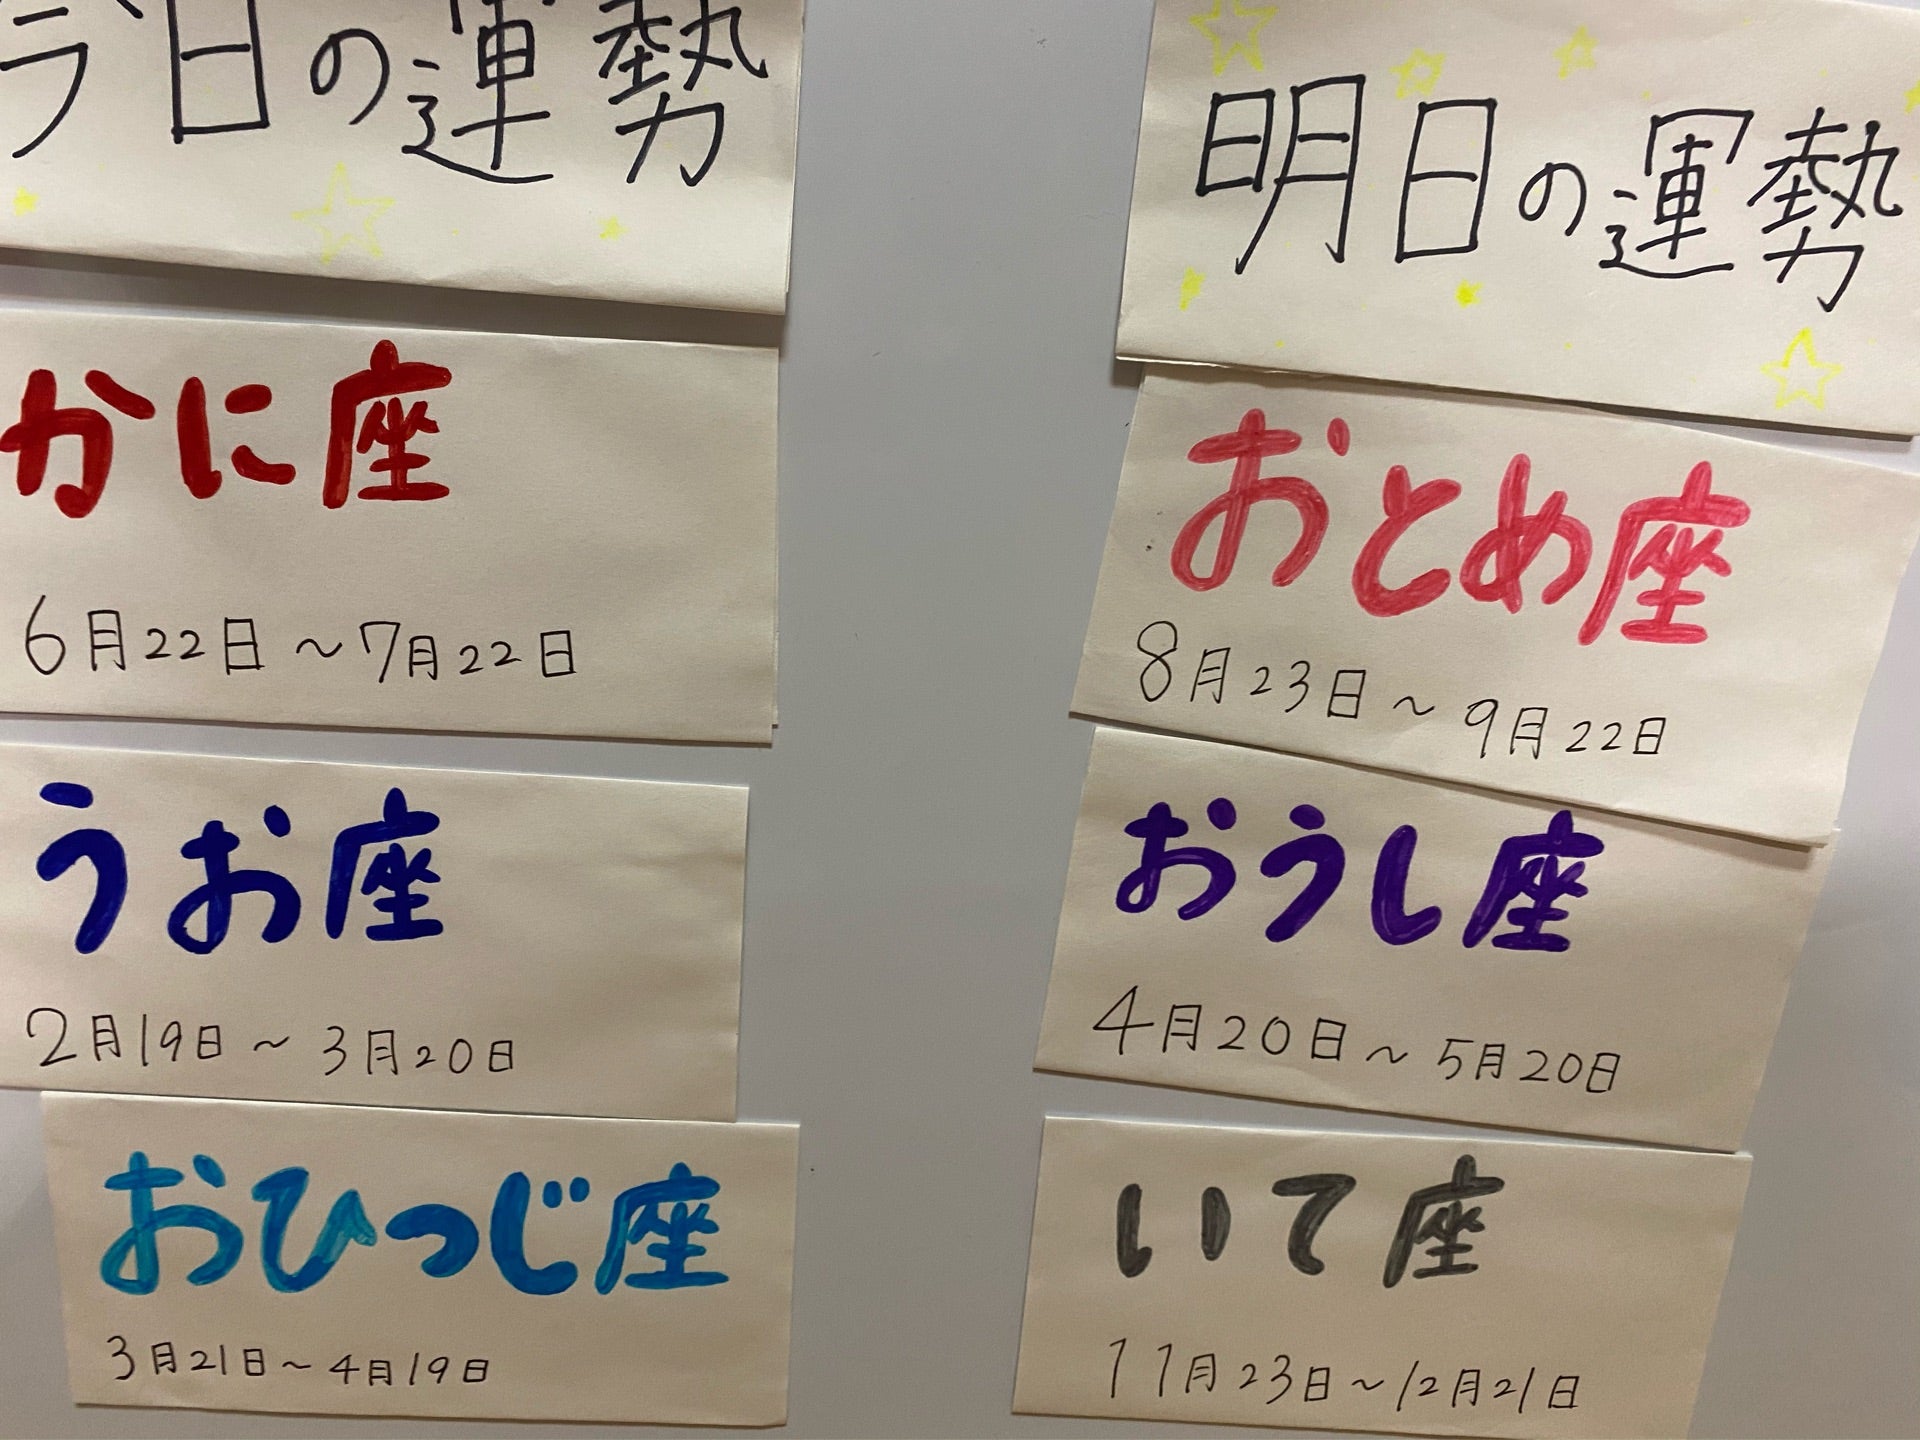 今日の運勢
かに座
6月22日～7月22日
うお座
2月19日～3月20日
おひつじ座
3月21日～4月19日
明日の運勢
おとめ座
8月23日～9月22日
おうし座
4月20日～5月20日
いて座
11月23日～12月21日